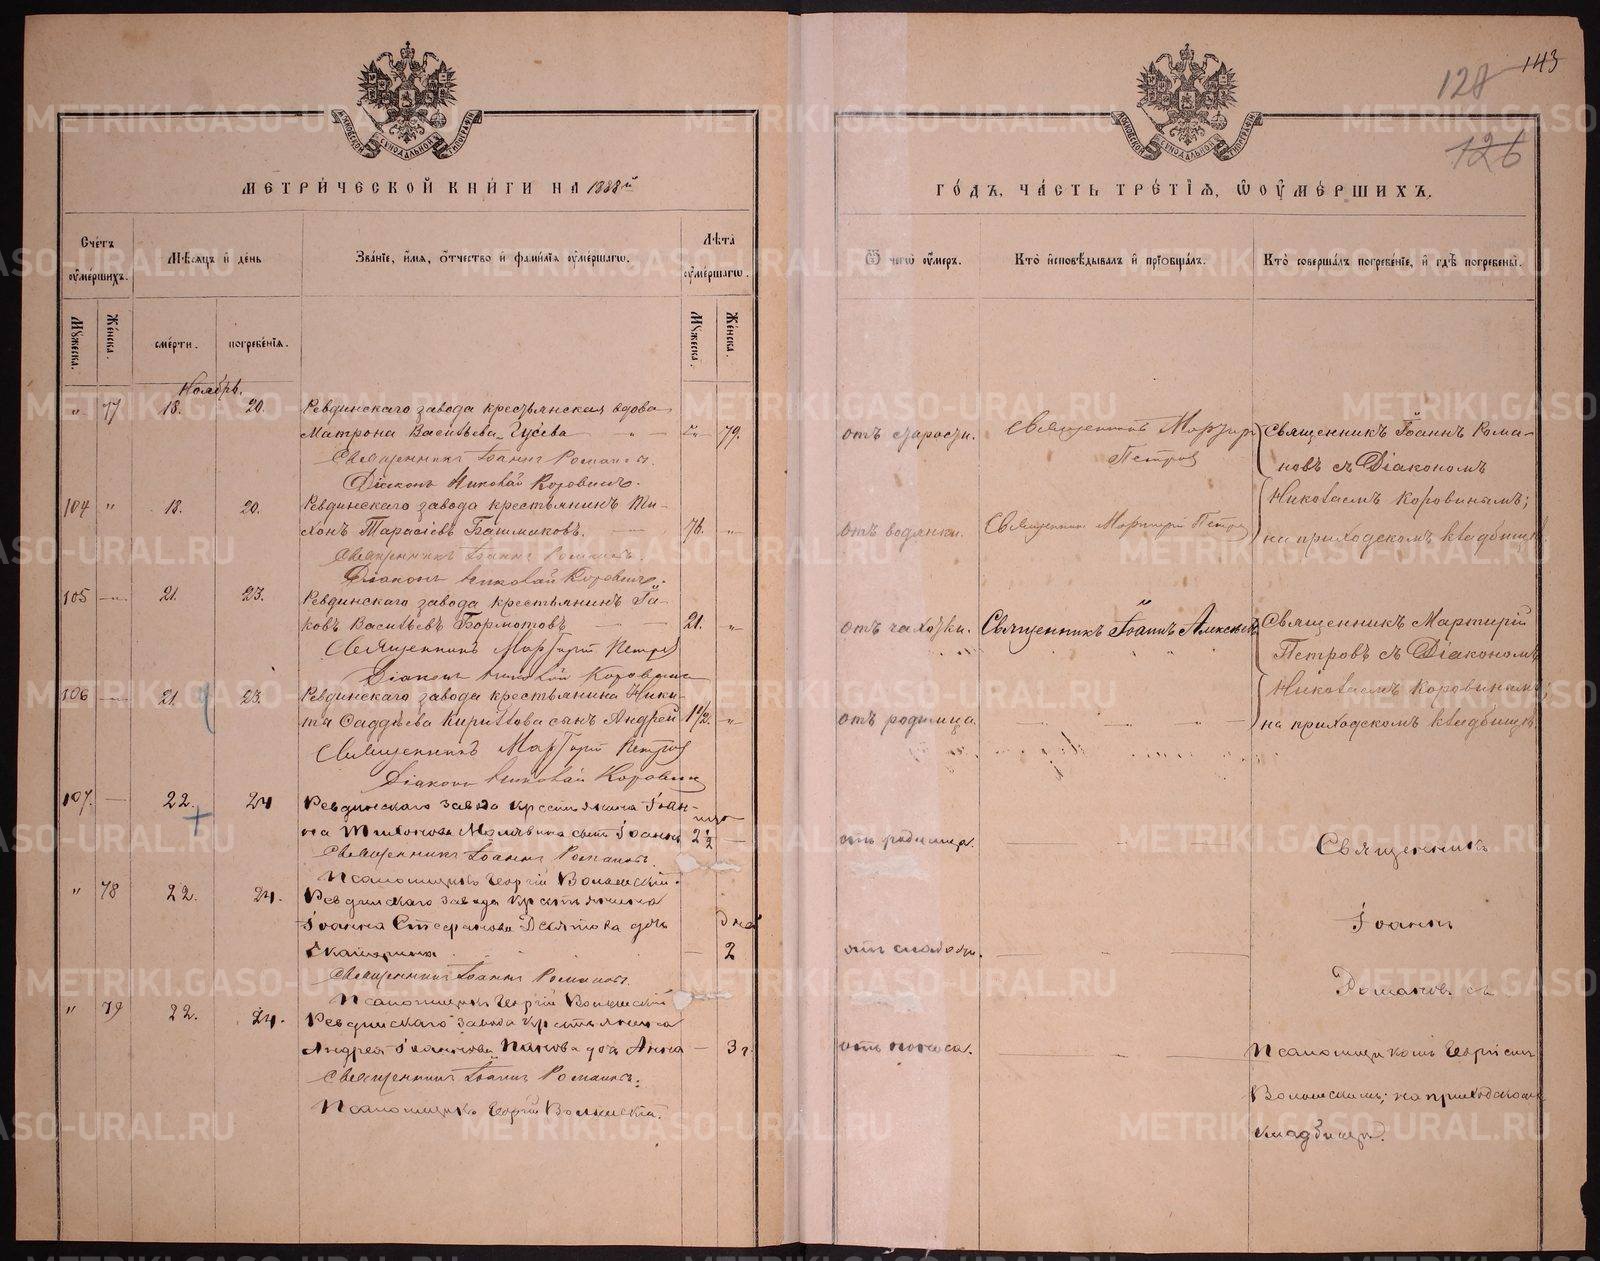 128 143
126
МЕТРИЧЕСКОЙ КНИГИ НА 1888й
ГОДЪ, ЧАСТЬ ТРЕТІЯ, Ѡ ОУМЕРШИХЪ.
Счетъ оумершихъ.
Мѣсяцъ и день
Званіе, имя, отчество и фамилія оумершагѡ.
Лѣта оумершагѡ.
Ѿ чегѡ оумеръ.
Кто исповѣдывалъ и пріобщалъ.
Кто совершалъ погребеніе, и гдѣ погребены.
Мужеска.
Женска.
смерти.
погребенія.
Мужеска.
Женска.
Ноябрь.
" 77 18. 20. Ревдинскаго завода крестьянская вдова
Матрона Васильева Гусева " 79. отъ старости. Священникъ Мартирій Петровъ
Священникъ Іоаннъ Романовъ.
Діаконъ Николай Коровинъ.
Священникъ Іоаннъ Рома-
новъ съ Діакономъ
Николаемъ Коровинымъ;
на приходскомъ кладбищѣ.
104 " 18. 20. Ревдинскаго завода крестьянинъ Ти-
хонъ Тарасіевъ Башмаковъ. 76. " отъ водянки. Священникъ Мартирій Петровъ
Священникъ Іоаннъ Романовъ.
Діаконъ Николай Коровинъ.
105 " 21. 23. Ревдинскаго завода крестьянинъ Іа-
ковъ Васильевъ Бормотовъ 21. " отъ чахотки. Священникъ Іоаннъ Алексѣевъ
Священникъ Мартирій Петровъ
Діаконъ Николай Коровинъ
Священникъ Мартирій
Петровъ съ Діакономъ
Николаемъ Коровинымъ;
на приходскомъ кладбищѣ
106 21. 23. Ревдинскаго завода крестьянина Ники-
ты Фаддѣева Кириллова сынъ Андрей 1 1/2. " отъ родимца.
Священникъ Мартирій Петровъ
Діаконъ Николай Коровинъ
107. 22. 24 Ревдинскаго завода крестьянина Іоан-
на Тихонова сынъ Іоаннъ 2 1/2 отъ родимца.
Священникъ Іоаннъ Романовъ.
Псаломщикъ Георгій
" 78 22. 24. Ревдинскаго завода крестьянина
Іоанна Стефанова Десятова дочь
Екатерина дня 2 отъ слабости.
Священникъ Іоаннъ Романовъ.
Псаломщикъ Георгій
" 79 22. 24. Ревдинскаго завода крестьянина
Андрея Іоаннова Панова дочь Анна 3 г. отъ поноса.
Священникъ Іоаннъ Романовъ.
Псаломщикъ Георгій
Священникъ
Іоаннъ
Романовъ съ
Псаломщикомъ Георгіемъ
на приходскомъ
кладбищѣ.
METRIKI.GASO-URAL.RU